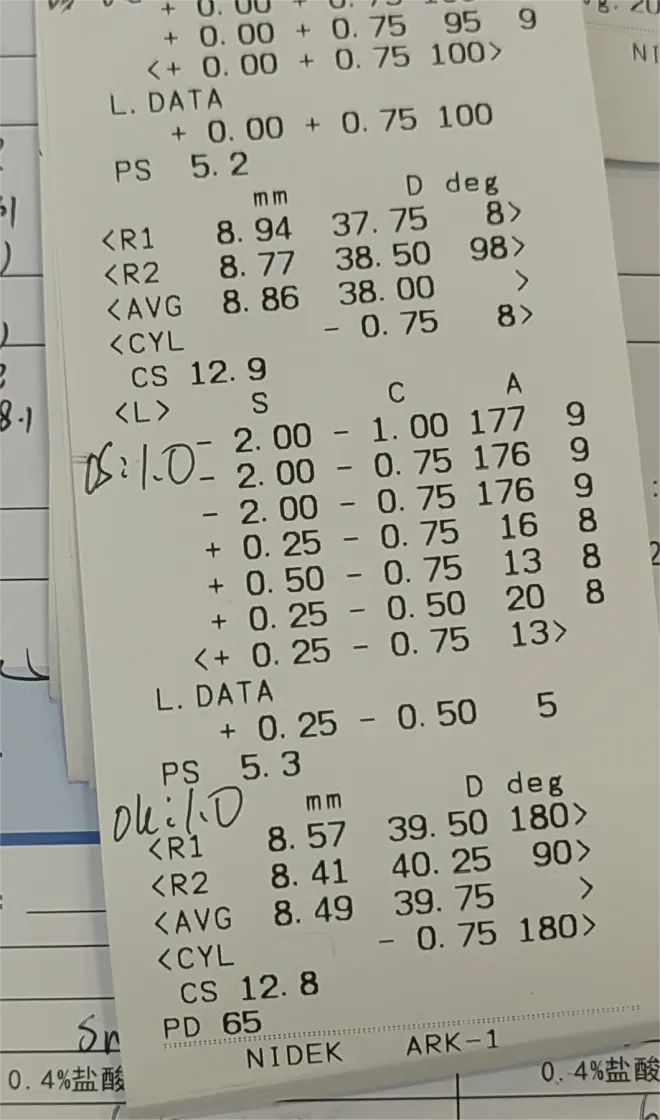 + 0.00 + 0.75 95 9
<+ 0.00 + 0.75 100>
L.DATA
+ 0.00 + 0.75 100
PS 5.2
mm D deg
<R1 8.94 37.75 8>
<R2 8.77 38.50 98>
<AVG 8.86 38.00 >
<CYL - 0.75 8>
CS 12.9
<L> S C A
- 2.00 - 1.00 177 9
OS:1.0
- 2.00 - 0.75 176 9
- 2.00 - 0.75 176 9
+ 0.25 - 0.75 16 8
+ 0.50 - 0.75 13 8
+ 0.25 - 0.50 20 8
<+ 0.25 - 0.75 13>
L.DATA
+ 0.25 - 0.50 5
PS 5.3
mm D deg
<R1 8.57 39.50 180>
<R2 8.41 40.25 90>
<AVG 8.49 39.75 >
<CYL - 0.75 180>
CS 12.8
PD 65
NIDEK ARK-1
0.4%盐酸
0.4%盐酸
NI
8.1